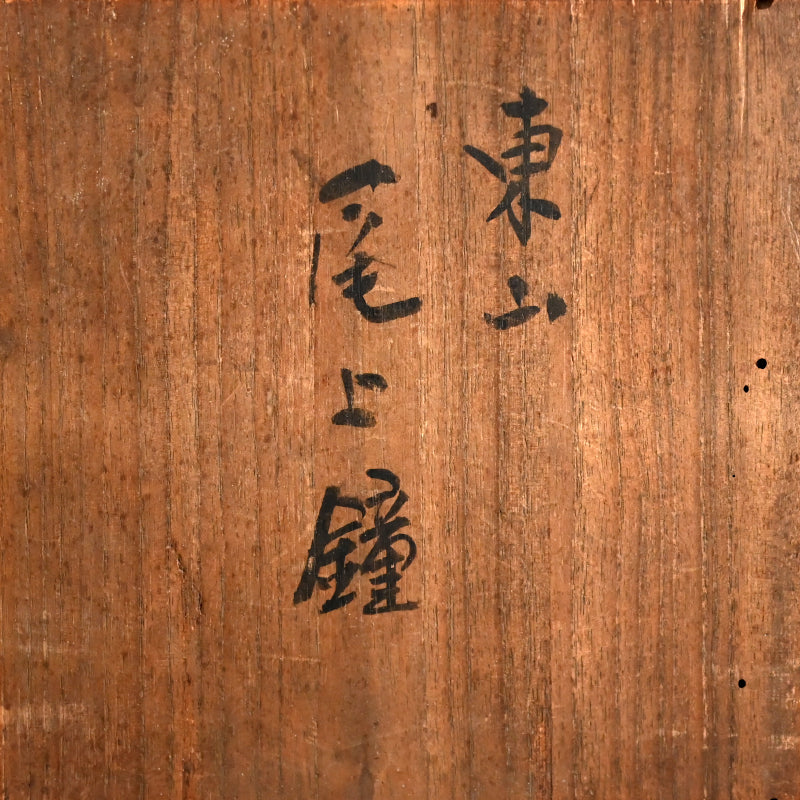 東山
尾上鐘